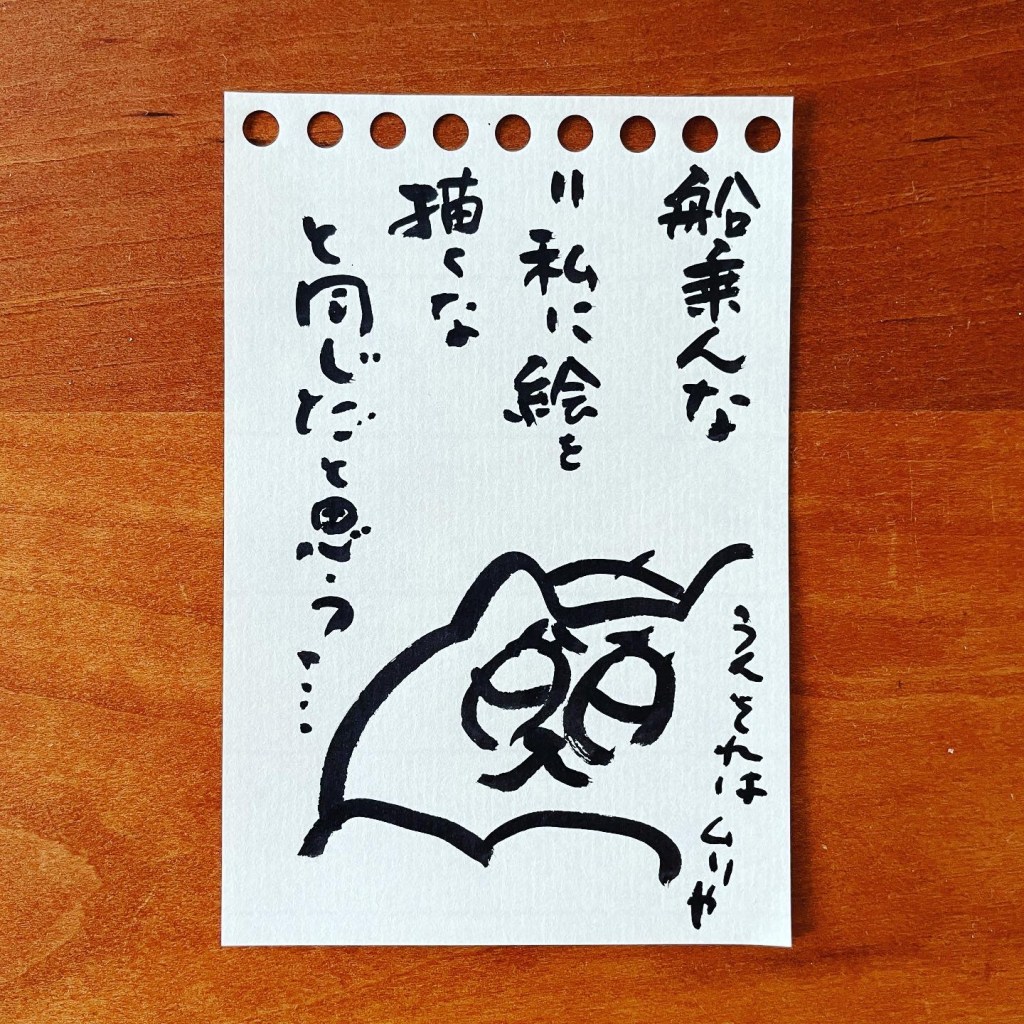 船乗んな
＝私に絵を
描くな
と同じだと思う....
うんそれはムリや